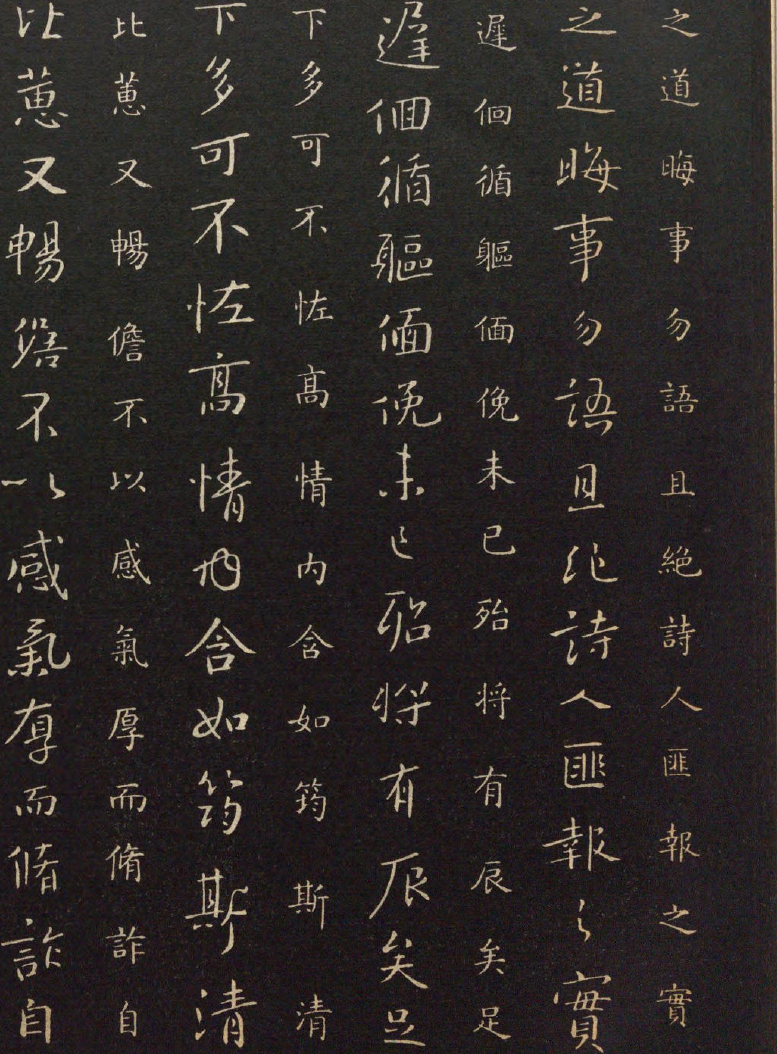 之道晦事勿語且絕詩人匪報之實
之道晦事勿語且絕詩人匪報之實
遲徊循軀偭俛未已殆将有辰矣足
遲徊循軀偭俛未已殆将有辰矣足
下多可不恠高情内含如筠斯清
下多可不恠高情内含如筠斯清
比蕙又暢儋不以感氣厚而脩詐自
比蕙又暢儋不以感氣厚而脩詐自